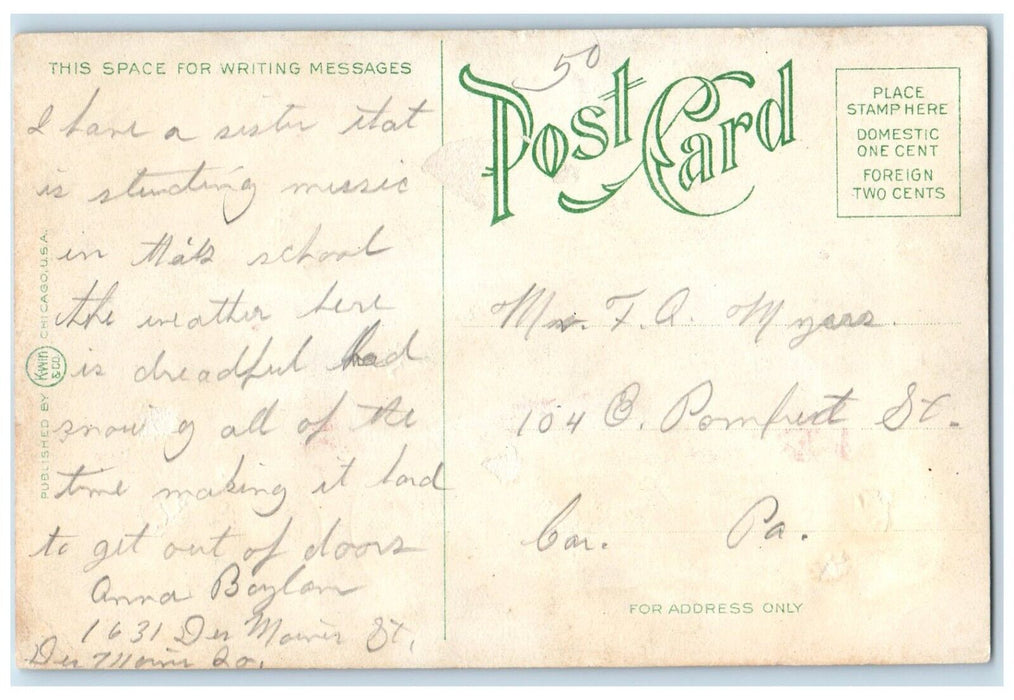 THIS SPACE FOR WRITING MESSAGES
I have a sister that
is studing mussic
in this school
the weather here
is dreadful bad
snowing all of the
time making it bad
to get out of doors
Anna Boylan
1631 Des Moines St,
Des Moines Io.
PUBLISHED BY KWIN & CO. CHICAGO, U.S.A.
50
Post Card
PLACE
STAMP HERE
DOMESTIC
ONE CENT
FOREIGN
TWO CENTS
F. A. Myers.
104 E. Pomfret St.
Car. Pa.
FOR ADDRESS ONLY